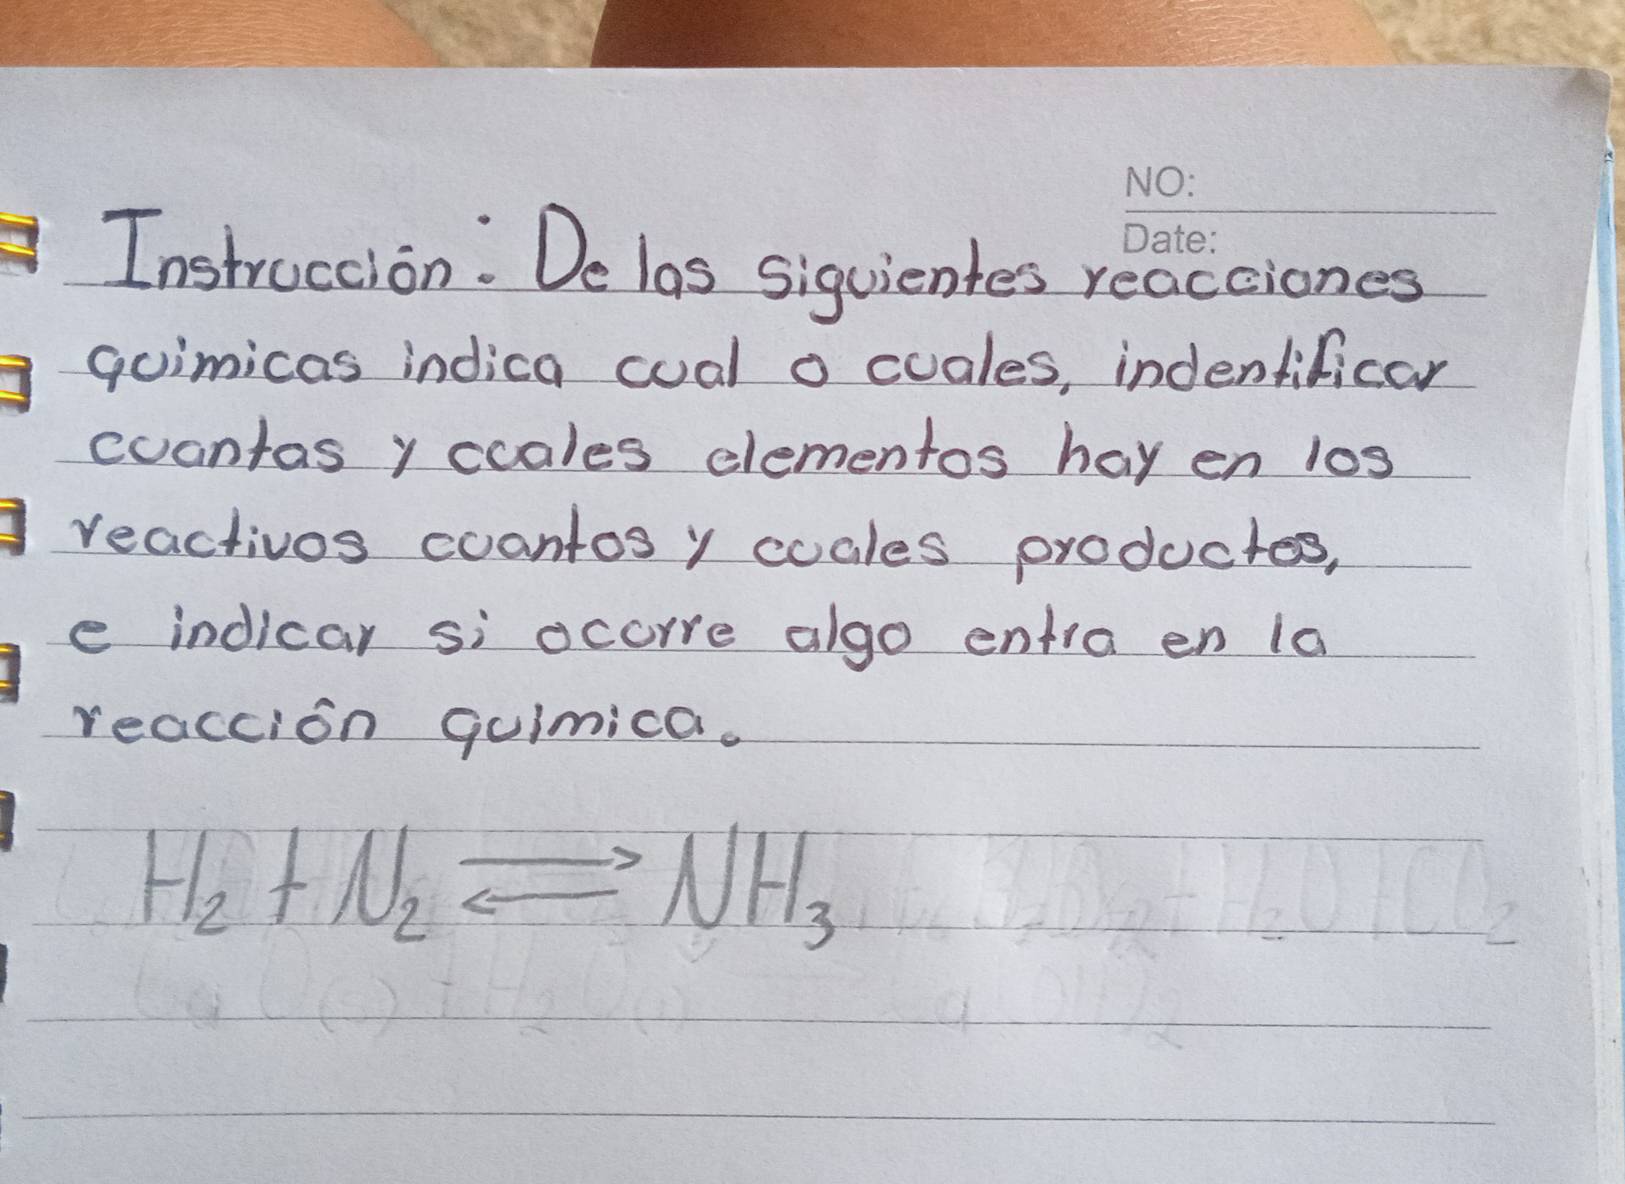 NO:
Date:
Instrucción: De las siguientes reacciones
quimicas indica cual o cuales, indentificar
cuantas y ccales elementos hay en los
reactivos cuantos y cuales productos,
e indicar si ocurre algo entra en la
reacción quimica.
H₂ + N₂ ⇌ NH₃